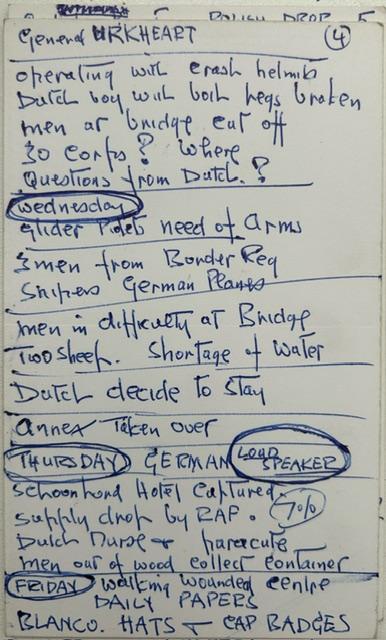 POLISH DROP 5
General URKHEART ④
operating with crash helmets
Dutch boy with both legs broken
men at bridge cut off
30 Corps? Where
Questions from Dutch.?
Wednesday
Glider Pilots need of Arms
3 men from Border Reg
Snipers German Planes
men in difficulty at Bridge
Two sheep. Shortage of Water
Dutch decide to Stay
annex Taken over
THURSDAY GERMAN LOUD SPEAKER
Schoonhord Hotel Captured
supply drop by RAF. 7%
Dutch Nurse + paracute
men out of wood collect container
FRIDAY walking wounded centre
DAILY PAPERS
BLANCO. HATS + CAP BADGES